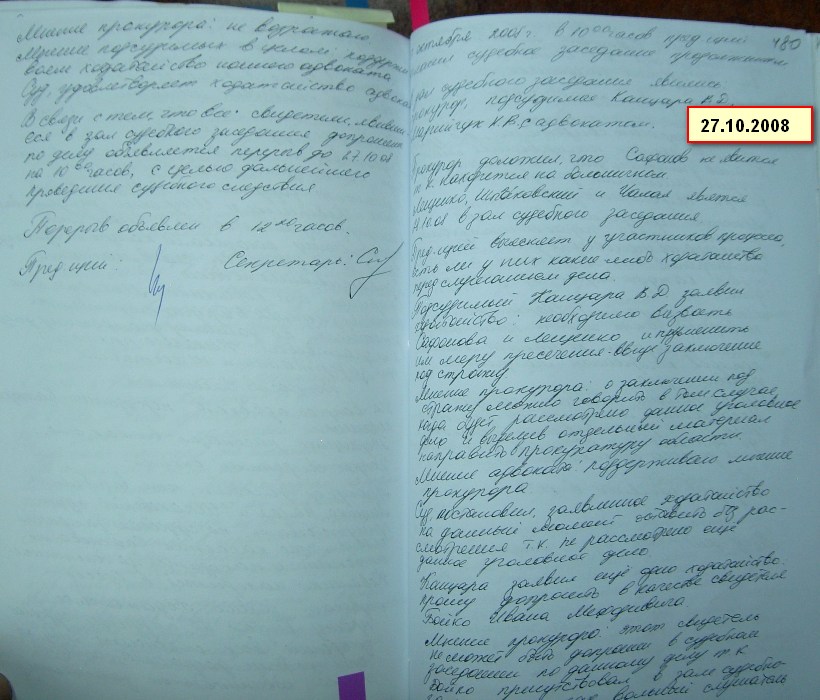 Мнение прокурора: не возражаю
Мнение подсудимых в целом: поддержи
ваем ходатайство нашего адвоката
Суд, удовлетворяет ходатайство адвока
В связи с тем, что все свидетели, явивши
еся в зал судебного заседания допрошены
по делу объявляется перерыв до 27.10.08
на 10 00 часов, с целью дальнейшего
проведения судебного следствия
Перерыв объявлен в 12 часов.
Пред-щий: Секретарь:
октября 2008 г. в 10 00 часов пред-щий 480
судебное заседание продолжили
зал судебного заседания явились
прокурор, подсудимые Канцара В.Д.
К.В. с адвокатом.
27.10.2008
Прокурор доложил, что Сафонов не явится
т.к. находится на больничном.
Лещенко, и Чалая явятся
в зал судебного заседания
Пред-щий выясняет у участников процесса,
есть ли у них какие либо ходатайства
перед слушанием дела.
Подсудимый Канцара В.Д. заявил
ходатайство: необходимо вызвать
Сафонова и Лещенко и применить
им меру пресечения - в виде заключение
под стражу
Мнение прокурора: о заключении под
стражу можно говорить в том случае,
когда будет рассмотрено данное уголовное
дело и выделив отдельный материал
направить в прокуратуру области.
Мнение адвоката: поддерживаю мнение
прокурора
Суд постановил, заявленное ходатайство
на данный момент оставить без рас-
смотрения т.к. не рассмотрено ещё
данное уголовное дело.
Канцара заявил ещё одно ходатайство:
прошу допросить в качестве свидетеля
Бойко Ивана
Мнение прокурора: этот свидетель
не может быть допрошен в судебном
заседании по данному делу т.к
Бойко присутствовал в зале судебно-
слушатель